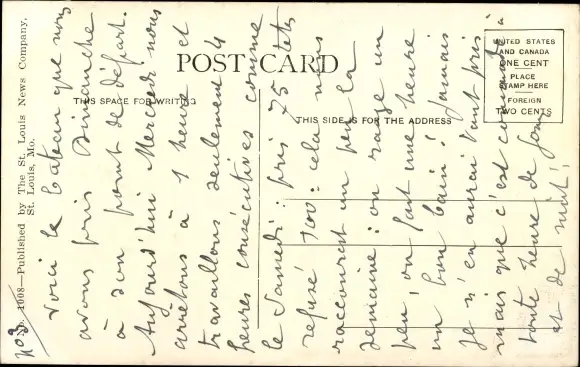 POST CARD
THIS SPACE FOR WRITING
THIS SIDE IS FOR THE ADDRESS
UNITED STATES
AND CANADA
ONE CENT
PLACE
STAMP HERE
FOREIGN
TWO CENTS
No. 1008—Published by The St. Louis News Company.
St. Louis, Mo.
No 3
Voici le bateau que nous
avons pris Dimanche
à son point de départ.
Aujourd'hui Mercredi nous
arrêtons à 1 heure et
travaillons seulement 4
heures consécutives comme
le Samedi: pris 75 têtes
refusé 700: cela nous
raccourcit un peu la
semaine: on range un
peu, on fait une heure
un bon bain! jamais
Je n'en aurai tant pris
mais que c'est commode à
toute heure de jour
et de nuit!